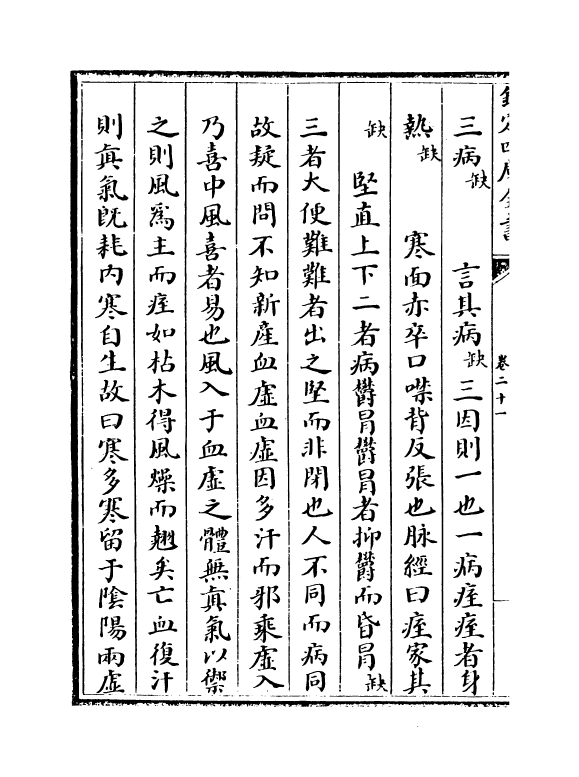 欽定四庫全書
卷二十一
三病缺言其病缺三因則一也一病痓痓者身
熱缺寒面赤卒口噤背反張也脉經曰痓家其
缺堅直上下二者病欝冒欝冒者抑欝而昏冒缺
三者大便難難者出之堅而非閉也人不同而病同
故疑而問不知新産血虛血虛因多汗而邪乘虛入
乃喜中風喜者易也風入于血虛之體無真氣以禦
之則風爲主而痓如枯木得風燥而翹矣亡血復汗
則真氣既耗内寒自生故曰寒多寒留于陰陽兩虛